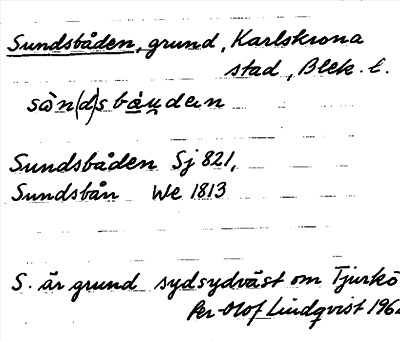 Sundsbåden, grund, Karlskrona
stad, Blek. l.
sòn(d)sbåu̯den
Sundsbåden Sj 821,
Sundsbån We 1813
S. är grund sydsydväst om Tjurkö
Per-Olof Lindqvist